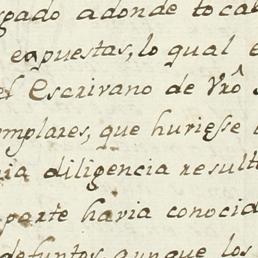 spado adonde tocab
expuestas, lo qual e
el Escrivano de Vrô
emplares, que huriesse
ria diligencia result
parte haria conocid
defuntos, aunque los